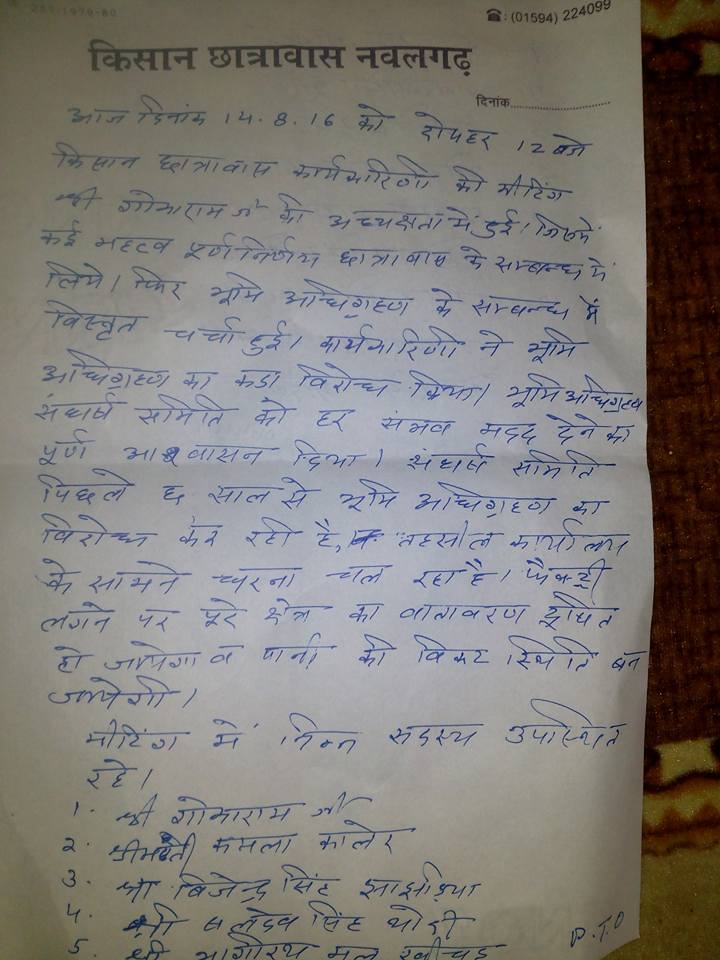 ☎: (01594) 224099
किसान छात्रावास नवलगढ़
दिनांक..............................
आज दिनांक 14.8.16 को दोपहर 12 बजे
किसान छात्रावास कार्यकारिणी की मीटिंग
श्री गोमाराम जी की अध्यक्षता में हुई। जिसमें
कई महत्व पूर्ण निर्णय छात्रावास के सम्बन्ध में
लिये। फिर भूमि अधिग्रहण के सम्बन्ध में
विस्तृत चर्चा हुई। कार्यकारिणी ने भूमि
अधिग्रहण का कडा विरोध किया। भूमि अधिग्रहण
संघर्ष समिति को हर संभव मदद देने का
पूर्ण आश्वासन दिया। संघर्ष समिति
पिछले छ साल से भूमि अधिग्रहण का
विरोध कर रही है, तहसील कार्यालय
के सामने धरना चल रहा है। फैक्ट्री
लगने पर पूरे क्षेत्र का वातावरण दूषित
हो जायेगा व पानी की विकट स्थिति बन
जायेगी।
मीटिंग में निम्न सदस्य उपस्थित
रहे।
1. श्री गोमाराम जी
2. श्रीमती कमला कालेर
3. श्री विजेन्द्र सिंह झाझड़िया
4. श्री सिंह
5. श्री भागीरथ मल खीचड
P.T.O